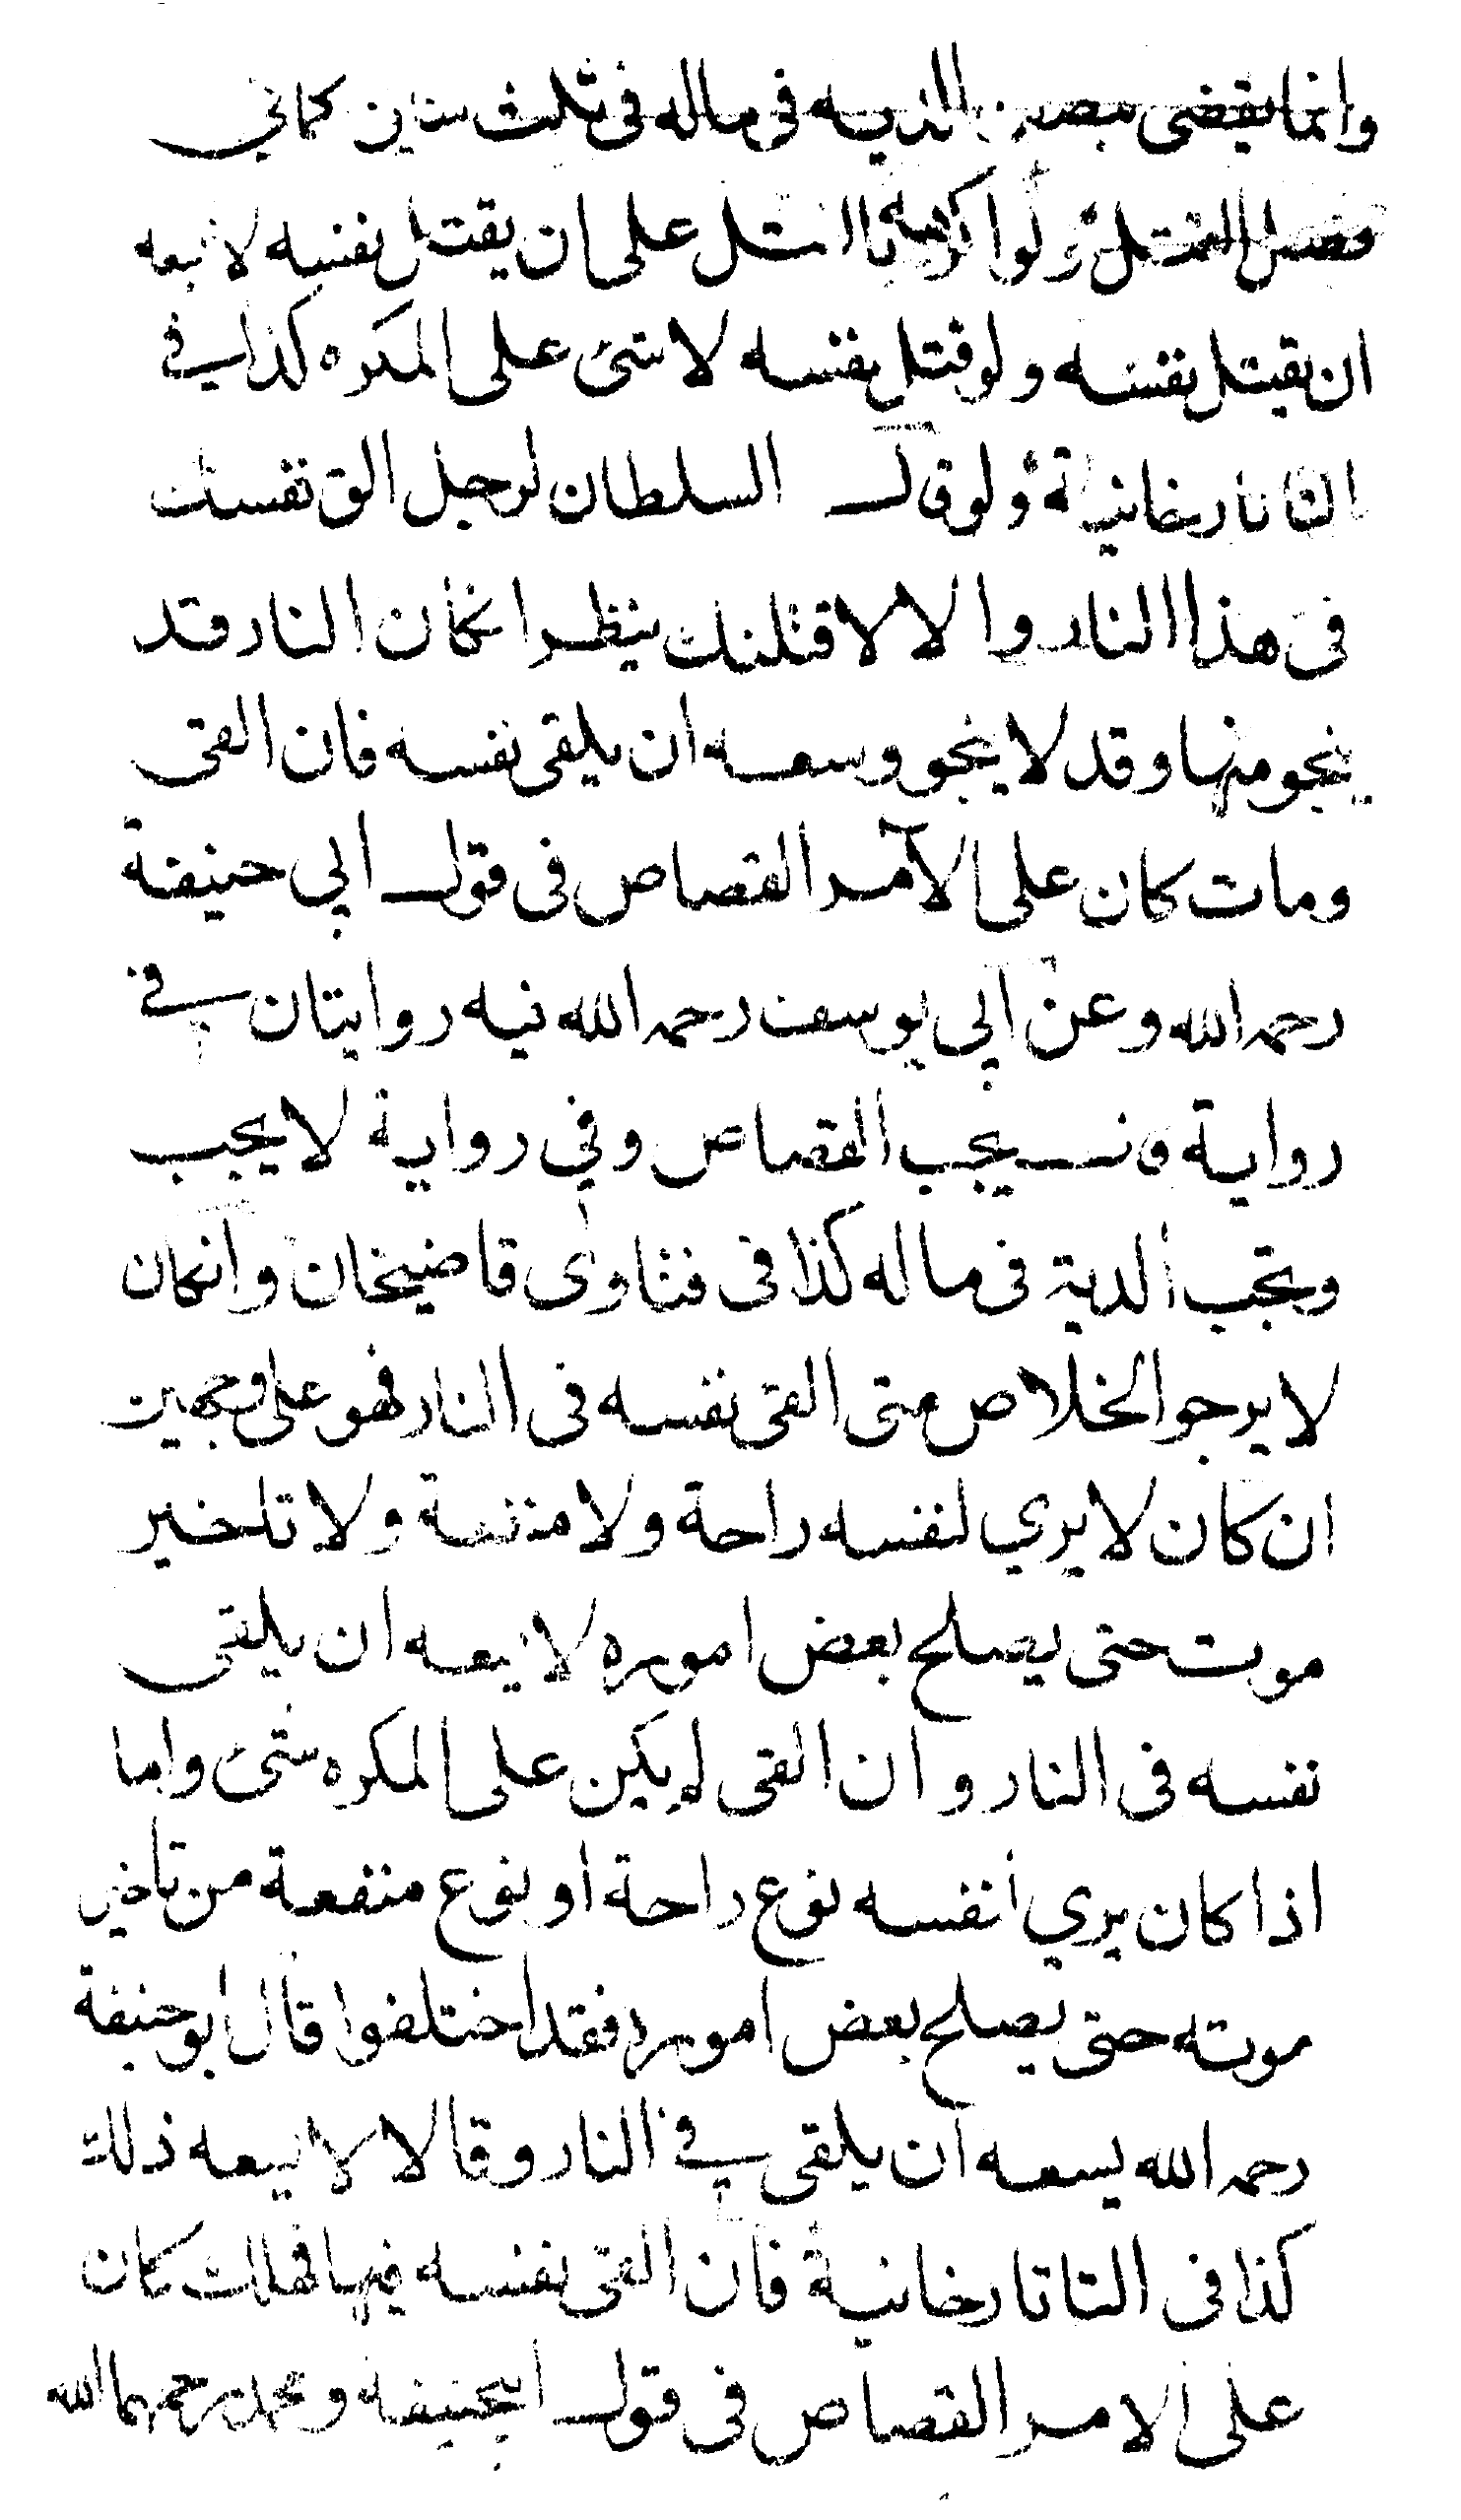 وانما يقضى بصير الديه فى ماله فى ثلث سنين كما في
فصل القتل ولو اكرهه با لقتل على ان يقتل نفسه لا يسعه
ان يقتل نفسه ولو قتل نفسه لا شئ على المكره كذا في
التاتارخانية ولو قال السلطان لرجل الق نفسك
فى هذا النار والا لاقتلنك ينظر انكان النار قد
ينجو منها وقد لا ينجو وسعه ان يلقى نفسه فان القى
ومات كان على الآمر القصاص فى قول ابي حنيفة
رحمه الله وعن ابي يوسف رحمه الله فيه روايتان في
رواية قال يجب القصاص وفي رواية لا يجب
وتجب الدية فى ماله كذا فى فتاوى قاضيخان وانكان
لا يرجو الخلاص متى القى نفسه فى النار فهو على وجهين
ان كان لا يري لنفسه راحة ولا منفعة ولا تاخير
موت حتى يصلح بعض اموره لا يسعه ان يلقى
نفسه فى النار وان القى لم يكن على المكره شئ واما
اذا كان يري لنفسه نوع راحة او نوع منفعة من تاخير
موته حتى يصلح بعض اموره فقد اختلفوا قال ابو حنيفة
رحمه الله يسعه ان يلقى في النار وقالا لا يسعه ذلك
كذا فى التاتارخانية فان القى نفسه فيها فهلك كان
على الامر القصاص فى قول ابيحنيفة ومحمد رحمهما الله